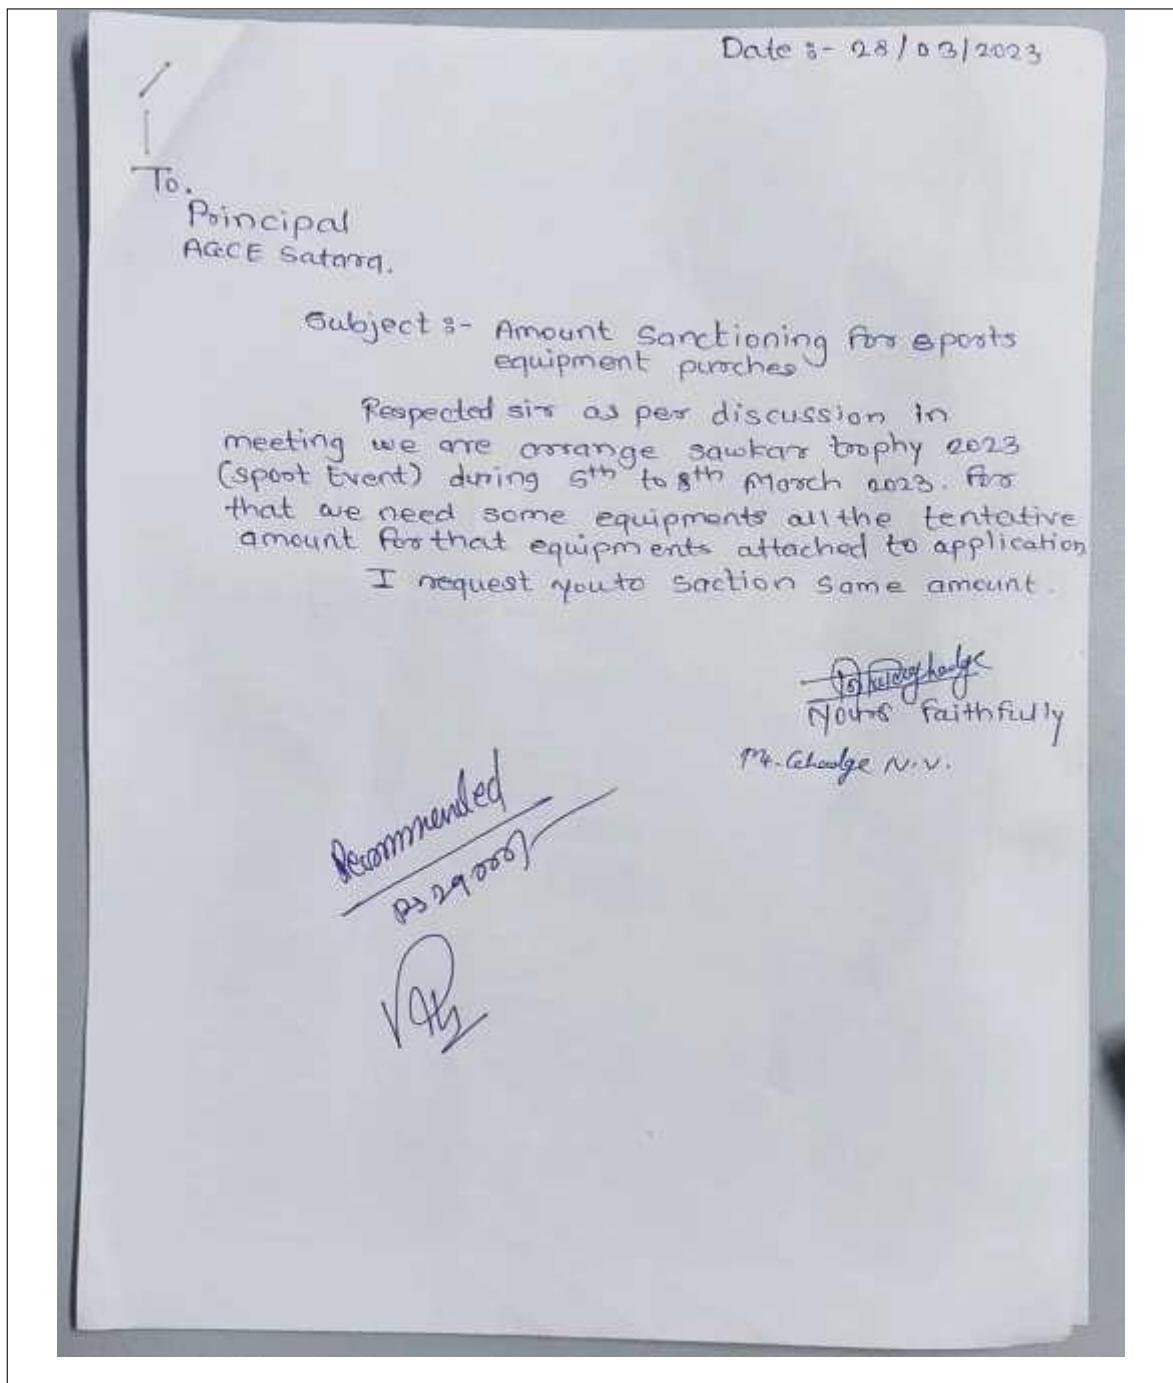 Date :- 28/03/2023
To.
Principal
AGCE Satara.
Subject :- Amount Sanctioning for sports
equipment purches
Respected sir as per discussion in
meeting we are arrange sawkar trophy 2023
(spoot Event) during 5th to 8th March 2023. For
that we need some equipments all the tentative
amount for that equipments attached to application
I request you to saction same amount.
Yours faithfully
Mr. Ghadge N.V.
Recommended
Rs 29000/-